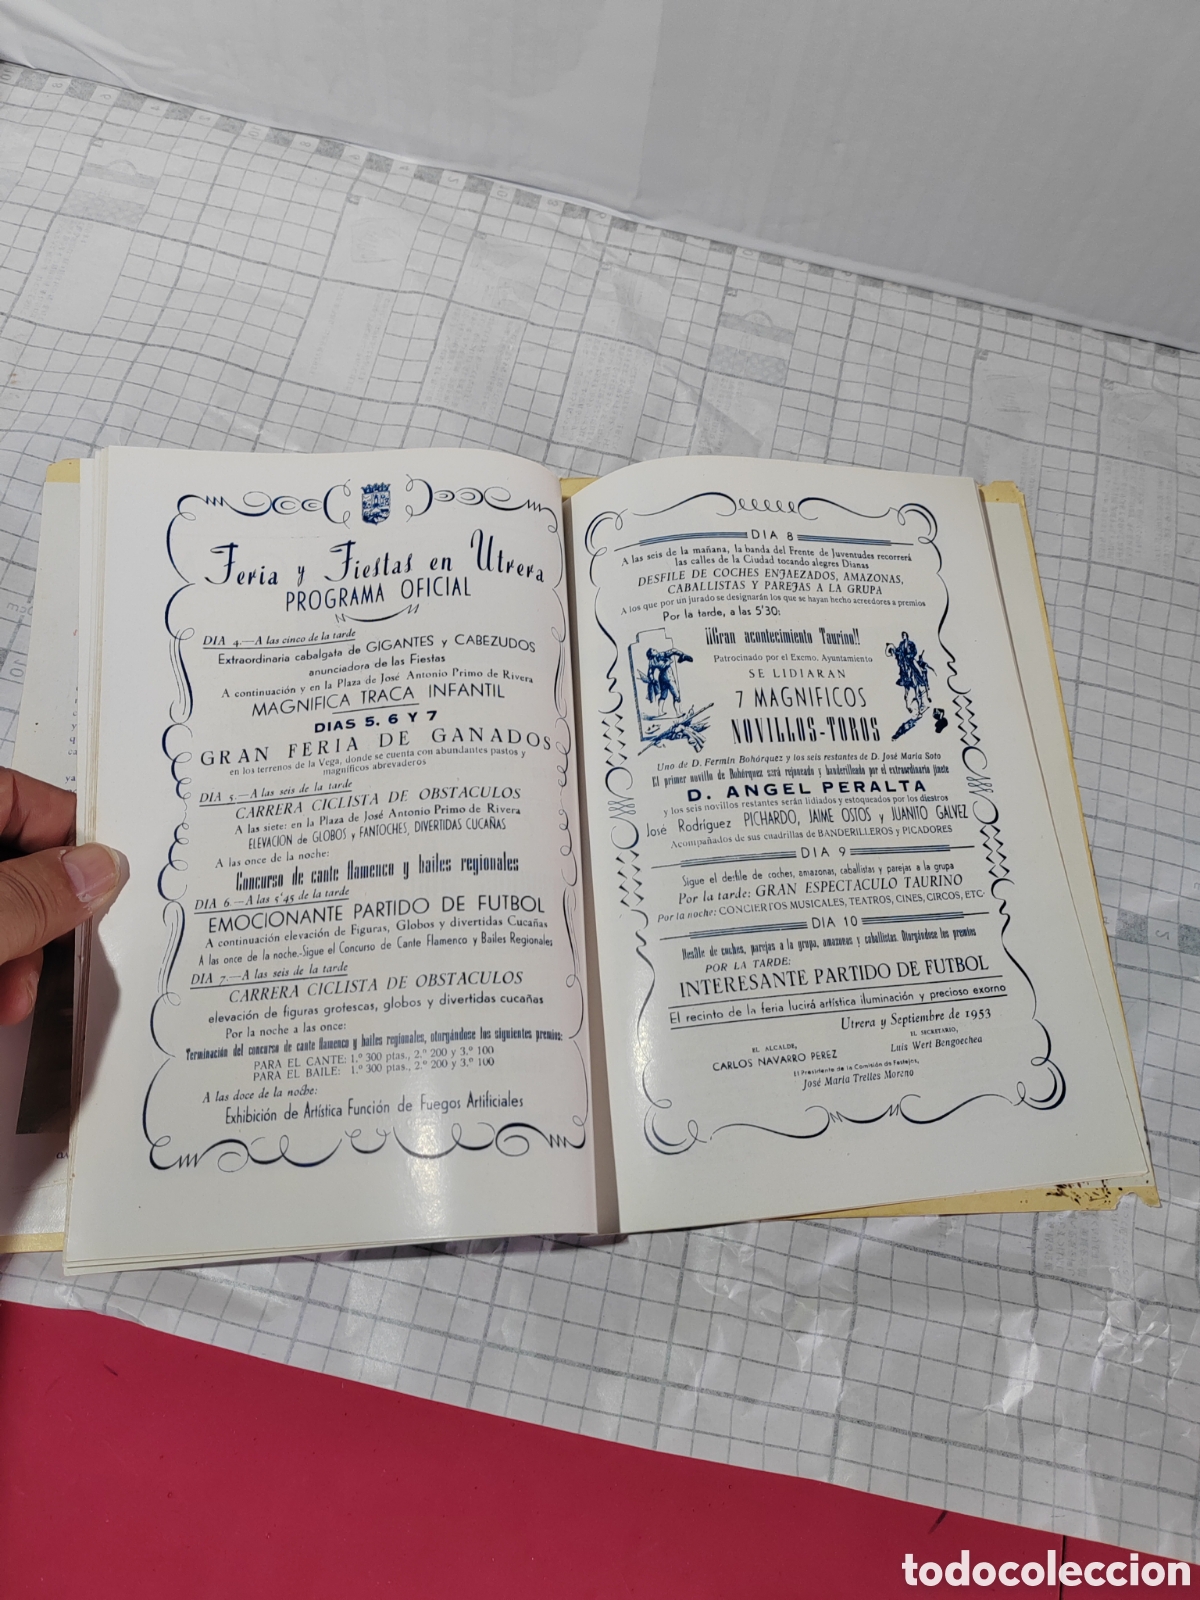 Feria y Fiestas en Utrera
PROGRAMA OFICIAL
DIA 4.—A las cinco de la tarde
Extraordinaria cabalgata de GIGANTES y CABEZUDOS
anunciadora de las Fiestas
A continuación y en la Plaza de José Antonio Primo de Rivera
MAGNIFICA TRACA INFANTIL
DIAS 5, 6 Y 7
GRAN FERIA DE GANADOS
en los terrenos de la Vega, donde se cuenta con abundantes pastos y
magníficos abrevaderos
DIA 5.—A las seis de la tarde
CARRERA CICLISTA DE OBSTACULOS
A las siete: en la Plaza de José Antonio Primo de Rivera
ELEVACION de GLOBOS y FANTOCHES, DIVERTIDAS CUCAÑAS
A las once de la noche:
Concurso de cante flamenco y bailes regionales
DIA 6.—A las 5'45 de la tarde
EMOCIONANTE PARTIDO DE FUTBOL
A continuación elevación de Figuras, Globos y divertidas Cucañas
A las once de la noche.-Sigue el Concurso de Cante Flamenco y Bailes Regionales
DIA 7.—A las seis de la tarde
CARRERA CICLISTA DE OBSTACULOS
elevación de figuras grotescas, globos y divertidas cucañas
Por la noche a las once:
Terminación del concurso de cante flamenco y bailes regionales, otorgándose los siguientes premios:
PARA EL CANTE: 1.º 300 ptas., 2.º 200 y 3.º 100
PARA EL BAILE: 1.º 300 ptas., 2.º 200 y 3.º 100
A las doce de la noche:
Exhibición de Artística Función de Fuegos Artificiales
DIA 8
A las seis de la mañana, la banda del Frente de Juventudes recorrerá
las calles de la Ciudad tocando alegres Dianas
DESFILE DE COCHES ENJAEZADOS, AMAZONAS,
CABALLISTAS Y PAREJAS A LA GRUPA
A los que por un jurado se designarán los que se hayan hecho acreedores a premios
Por la tarde, a las 5'30:
¡¡Gran acontecimiento Taurino!!
Patrocinado por el Excmo. Ayuntamiento
SE LIDIARAN
7 MAGNIFICOS
NOVILLOS-TOROS
Uno de D. Fermín Bohórquez y los seis restantes de D. José María Soto
El primer novillo de Bohórquez será rejoneado y banderilleado por el extraordinario jinete
D. ANGEL PERALTA
y los seis novillos restantes serán lidiados y estoqueados por los diestros
José Rodríguez PICHARDO, JAIME OSTOS y JUANITO GALVEZ
Acompañados de sus cuadrillas de BANDERILLEROS y PICADORES
DIA 9
Sigue el desfile de coches, amazonas, caballistas y parejas a la grupa
Por la tarde: GRAN ESPECTACULO TAURINO
Por la noche: CONCIERTOS MUSICALES, TEATROS, CINES, CIRCOS, ETC.
DIA 10
Desfile de coches, parejas a la grupa, amazonas y caballistas. Otorgándose los premios
POR LA TARDE:
INTERESANTE PARTIDO DE FUTBOL
El recinto de la feria lucirá artística iluminación y precioso exorno
Utrera y Septiembre de 1953
EL ALCALDE,
CARLOS NAVARRO PEREZ
EL SECRETARIO,
Luis Wert Bengoechea
El Presidente de la Comisión de Festejos,
José María Trelles Moreno
todocoleccion